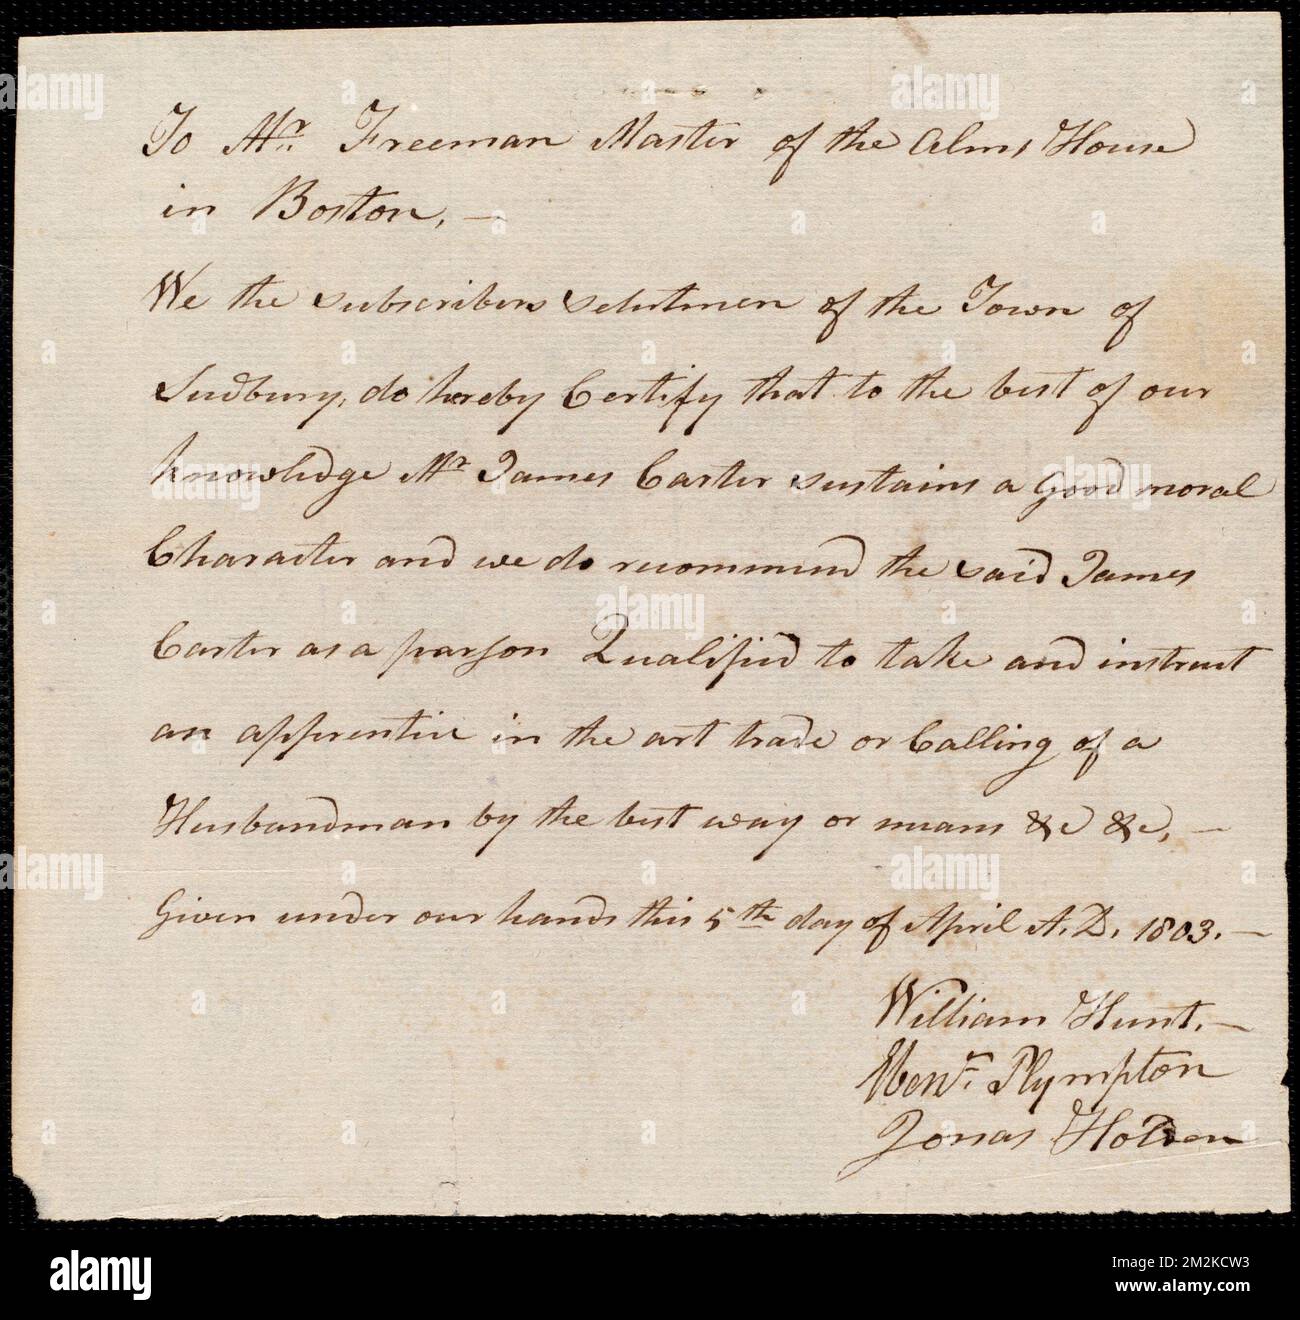 To Mr. Freeman Master of the Alms House
in Boston, —
We the subscribers Selectmen of the Town of
Sudbury, do hereby Certify that to the best of our
knowledge Mr James Carter sustains a Good moral
Character and we do recommend the said James
Carter as a parson Qualified to take and instruct
an apprentice in the art trade or Calling of a
Husbandman by the best way or means &c &c, —
Given under our hands this 5th day of April A.D. 1803. —
William Hunt. —
Plympton
Jonas Holden
alamy
Image ID: 2M2KCW3
www.alamy.com